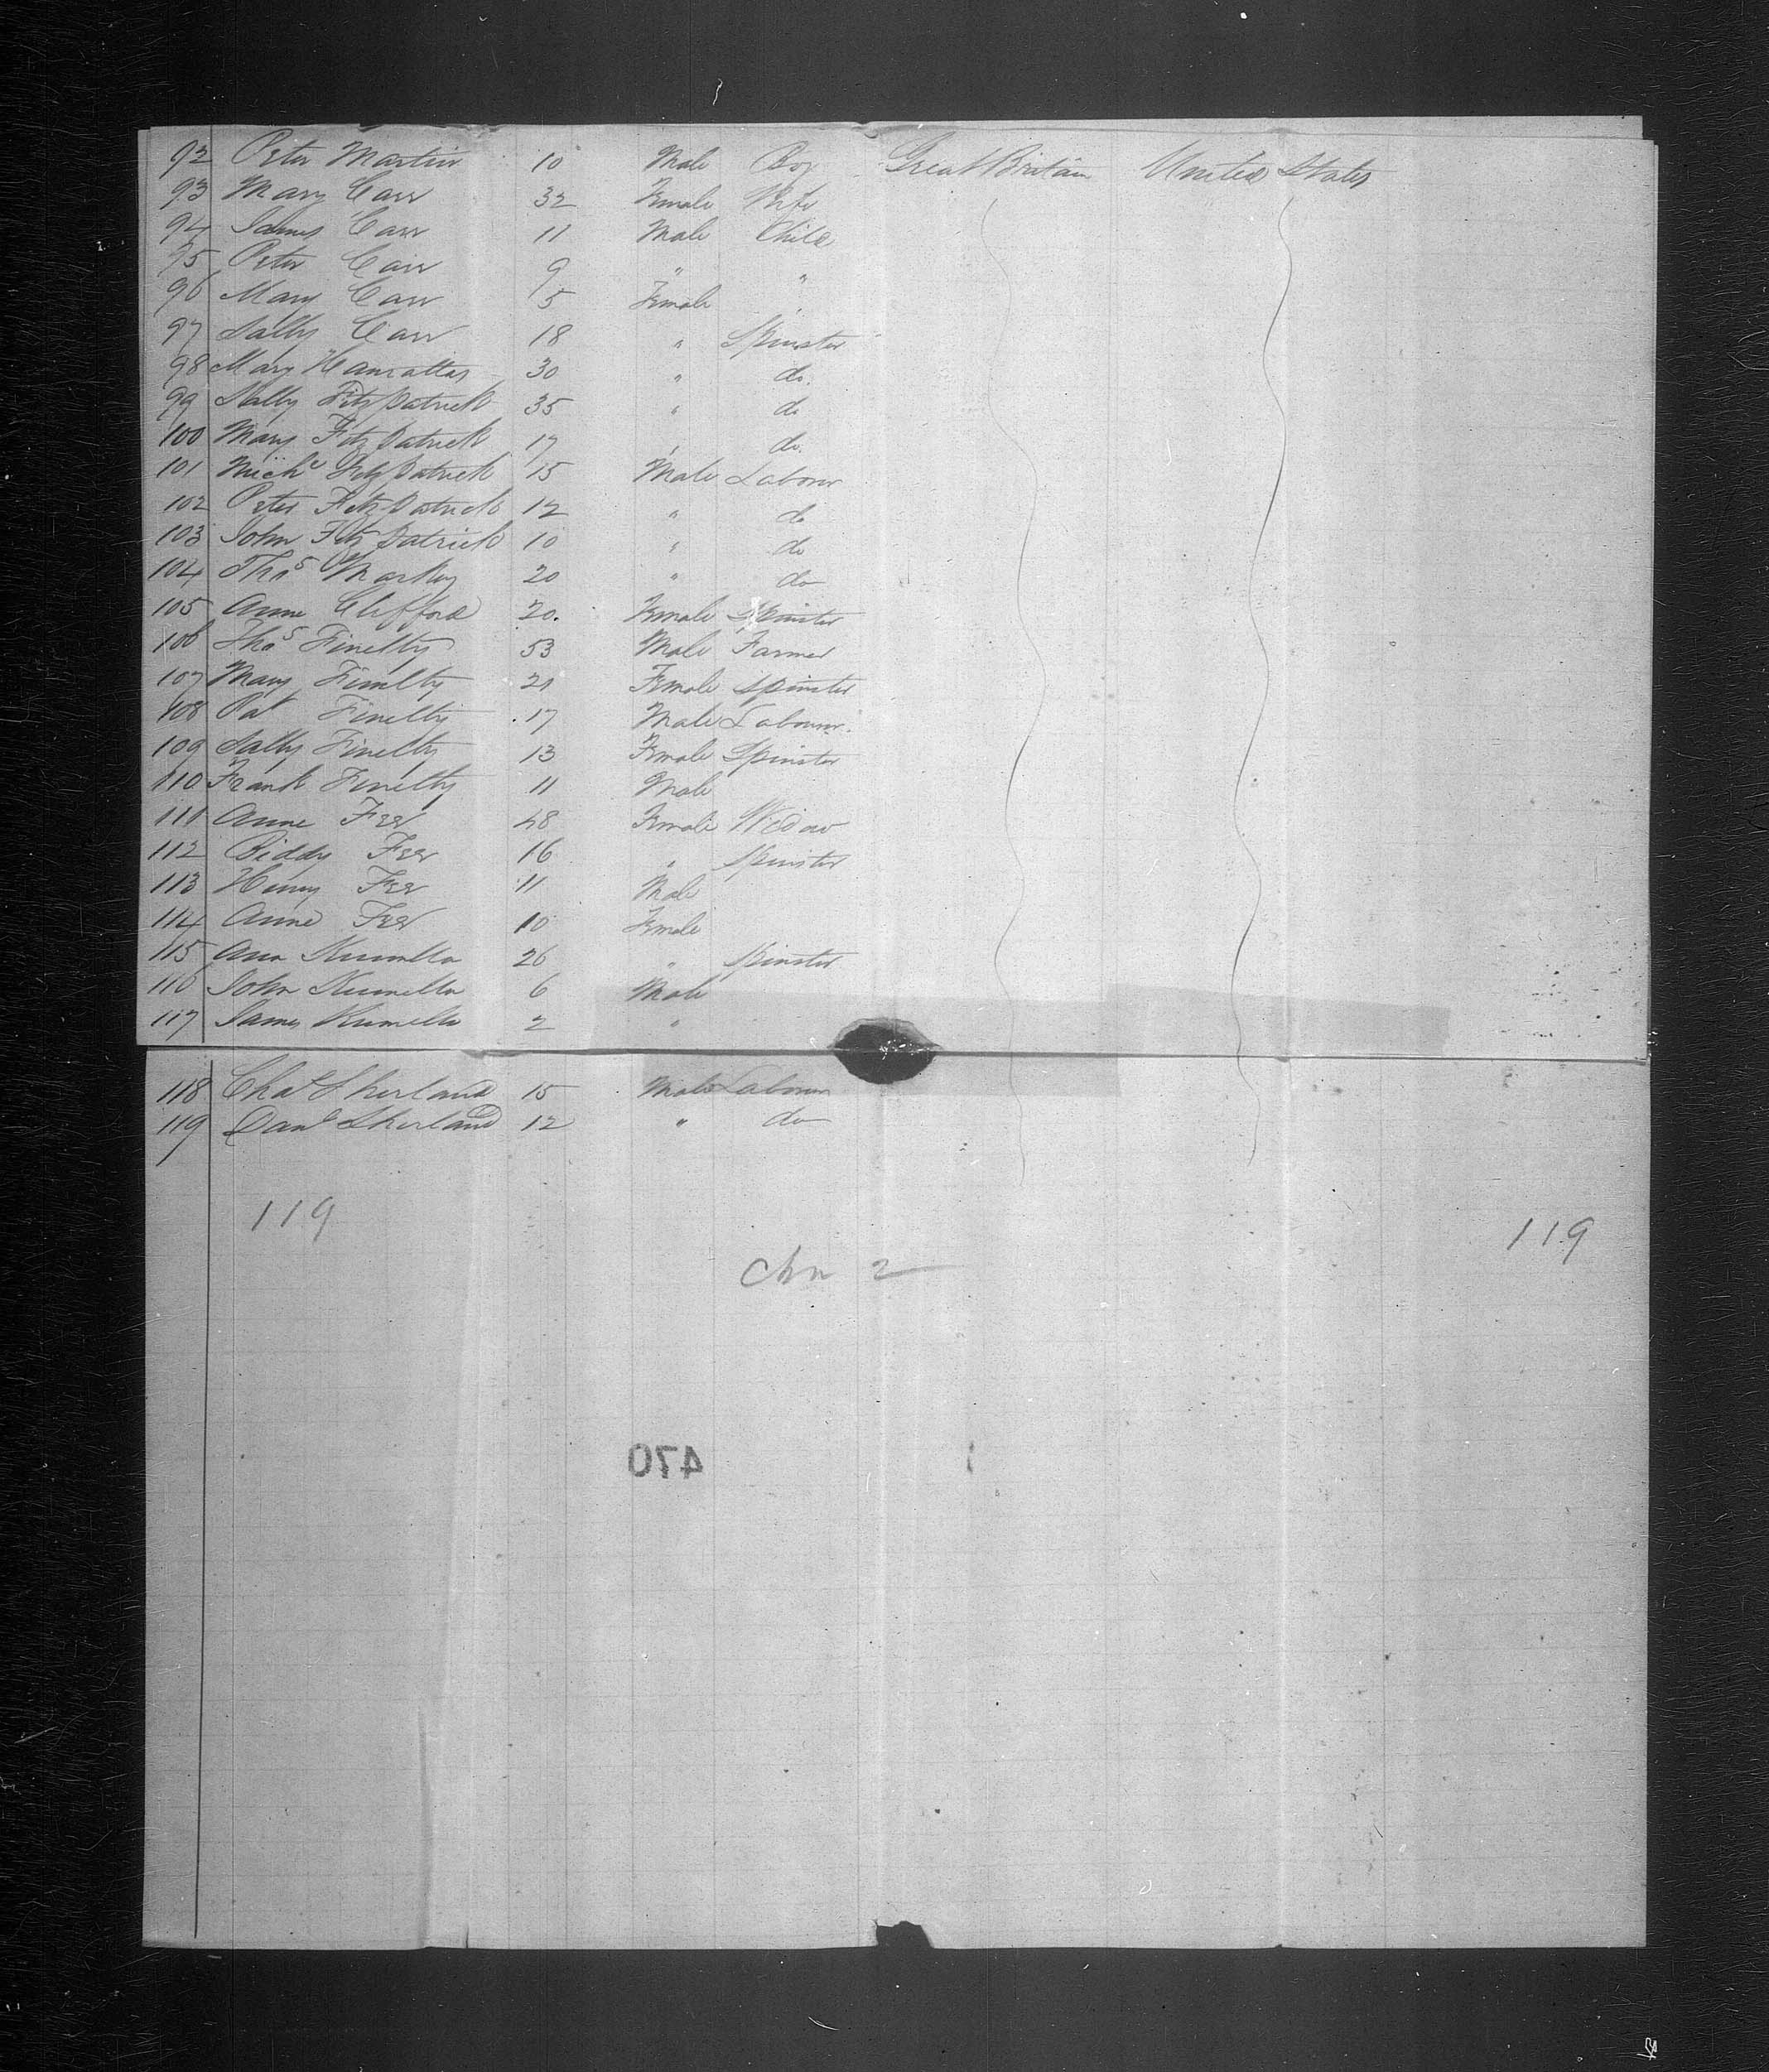 92 Peter Martin 10 Male Boy Great Britain United States
93 Mary Carr 32 Female Wife
94 James Carr 11 Male Child
95 Peter Carr 9 " "
96 Mary Carr 5 Female "
97 Sally Carr 18 " Spinster
98 Mary Hanrattay 30 " do.
99 Sally Fitzpatrick 35 " do
100 Mary Fitzpatrick 17 " do.
101 Michl Fitzpatrick 15 Male Laborer
102 Peter Fitzpatrick 12 " do
103 John Fitzpatrick 10 " do
104 Thos Markey 20 " do
105 Anne Clifford 20. Female Spinster
106 Thos Finelty 53 Male Farmer
107 Mary Finelty 21 Female Spinster
108 Pat Finelty 17 Male Labourer
109 Sally Finelty 13 Female Spinster
110 Frank Finelty 11 Male
111 Anne Fee 48 Female Widow
112 Biddy Fee 16 " Spinster
113 Henry Fee 11 Male
114 Anne Fee 10 Female
115 Ann 26 " Spinster
116 John 6 Male
117 James 2 "
118 Chas Sherland 15 Male Labourer
119 Danl Sherland 12 " do
119
119
Chn 2
470